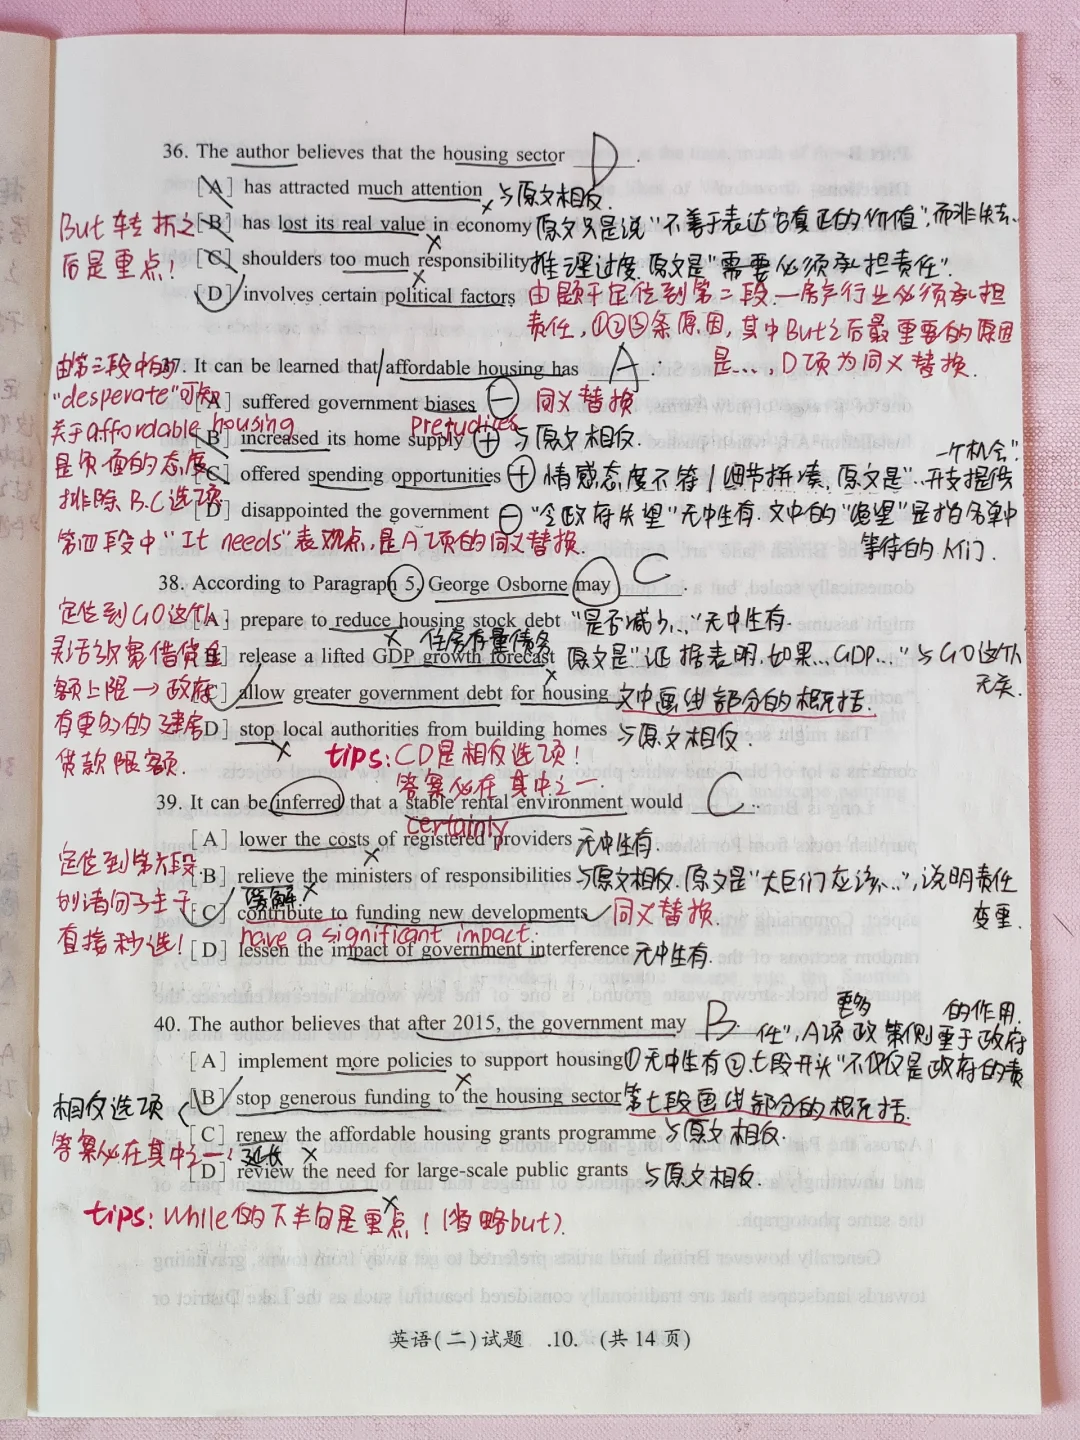 36. The author believes that the housing sector D .
[A] has attracted much attention 与原文相反.
But 转折之 [B] has lost its real value in economy 原文只是说"不善于表达它真正的价值",而非失去.
后是重点! [C] shoulders too much responsibility 推理过度.原文是"需要必须承担责任".
[D] involves certain political factors 由题干定位到第二段.一房产行业必须承担
责任,①②③条原因,其中But之后最重要的原因
是...,D项为同义替换.
由第三段中的 37. It can be learned that affordable housing has A .
"desperate"可知 [A] suffered government biases ⊖ 同义替换
prejudices
关于affordable housing [B] increased its home supply ⊕ 与原文相反.
是负面的态度 [C] offered spending opportunities ⊕ 情感态度不符/细节拼凑.原文是"..开支提供
一个机会".
排除B.C选项 [D] disappointed the government ⊖ "令政府失望"无中生有.文中的"绝望"是指名单中
等待的人们.
第四段中"It needs"表观点,是A项的同义替换.
38. According to Paragraph 5, George Osborne may C .
定位到GO这个人 [A] prepare to reduce housing stock debt "是否减少.."无中生有.
住房存量债务
灵活放宽借贷金 release a lifted GDP growth forecast 原文是"证据表明,如果...GDP..."与GO这个人
无关.
额上限→政府 [C] allow greater government debt for housing 文中画线部分的概括.
有更多的建房 [D] stop local authorities from building homes 与原文相反.
贷款限额. tips: CD是相反选项!
答案必在其中之一.
39. It can be inferred that a stable rental environment would C .
certainly
[A] lower the costs of registered providers 无中生有.
定位到第六段 [B] relieve the ministers of responsibilities 与原文相反.原文是"大臣们应该...",说明责任
变重.
缓解
[C] contribute to funding new developments 同义替换.
have a significant impact.
直接秒选! [D] lessen the impact of government interference 无中生有.
40. The author believes that after 2015, the government may B .
任",A项政策侧重于政府
更多的作用.
[A] implement more policies to support housing ①无中生有②.七段开头"不仅仅是政府的责
相反选项 [B] stop generous funding to the housing sector 第七段画线部分的概括.
答案必在其中之一! [C] renew the affordable housing grants programme 与原文相反.
延长
[D] review the need for large-scale public grants 与原文相反.
tips: While 句的下半句是重点!(省略but).
英语(二)试题 .10. (共14页)